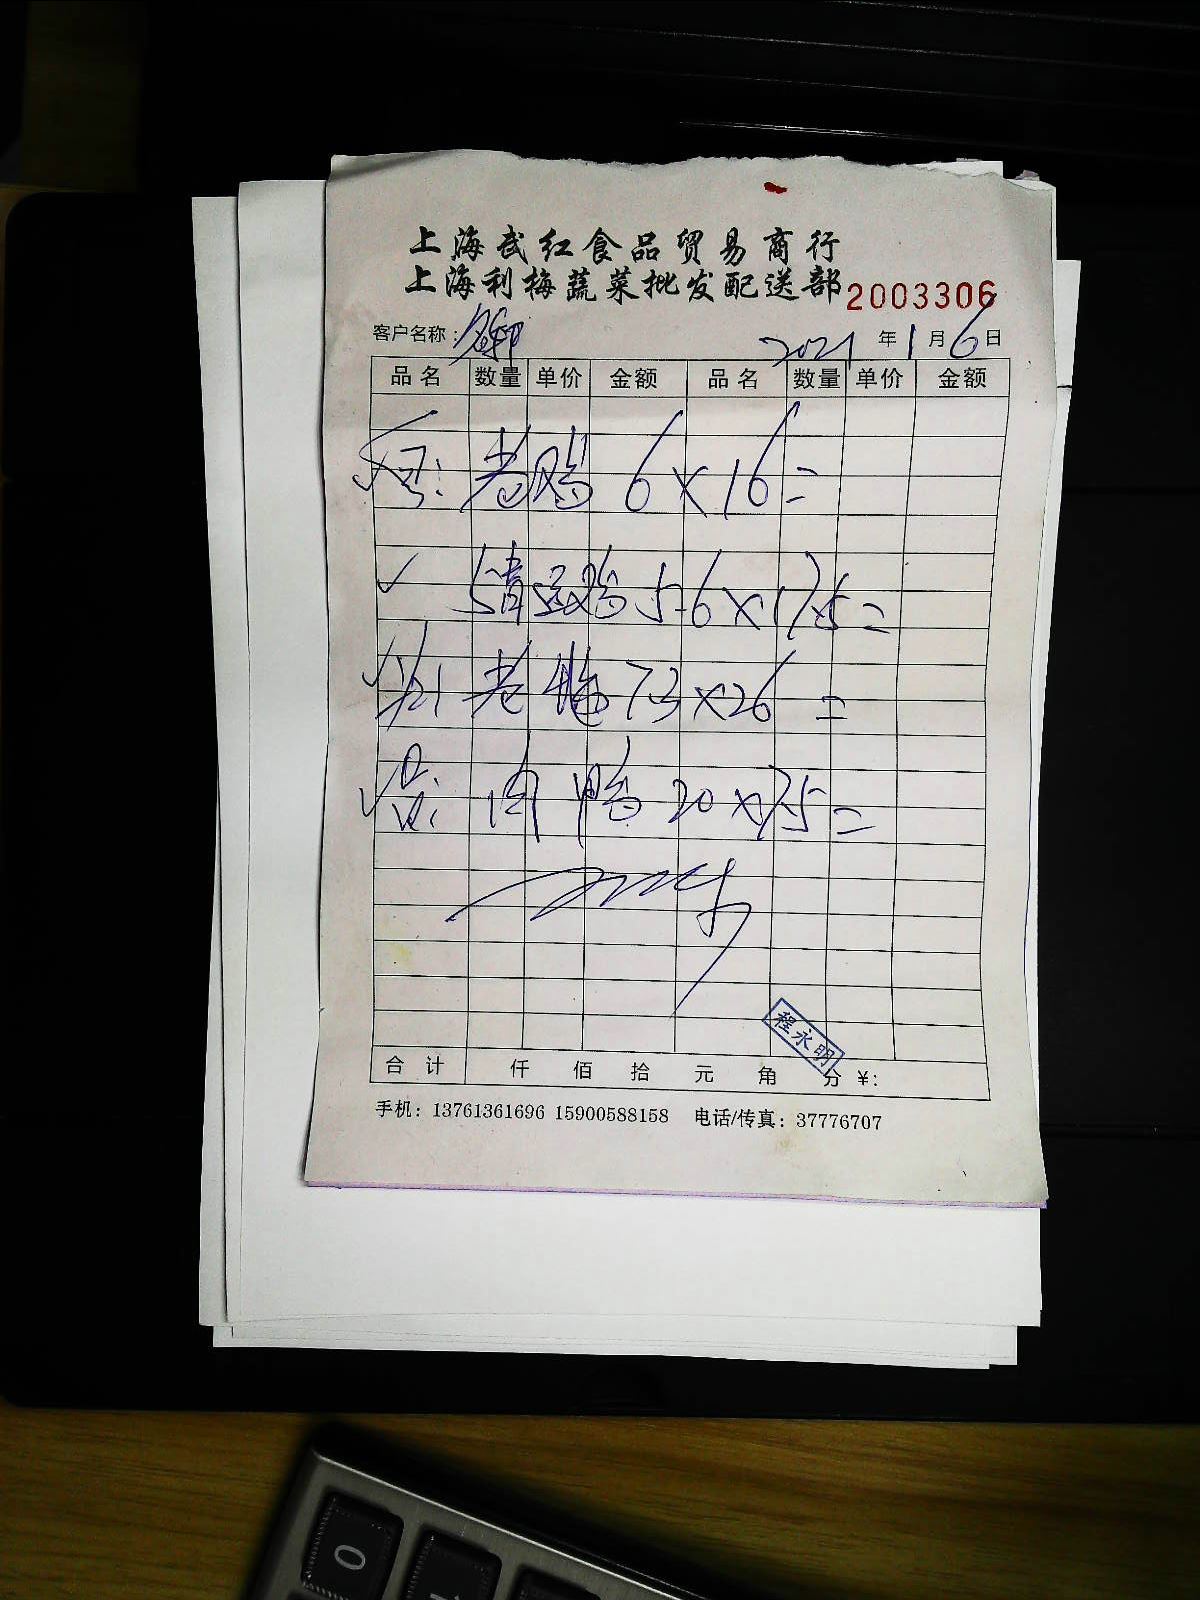 上海武红食品贸易商行
上海利梅蔬菜批发配送部 2003306
客户名称: 2021 年 1 月 6 日
品名 数量 单价 金额 品名 数量 单价 金额
老鸡 6×16=
清远鸡 5.6×17.5=
老鸭 73×26=
肉鸭 20×7.5=
程永明
合计 仟 佰 拾 元 角 分 ¥:
手机: 13761361696 15900588158 电话/传真: 37776707
0